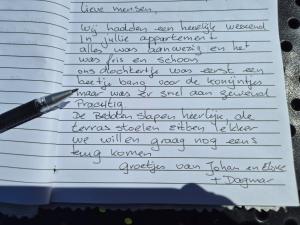 lieve mensen,
wij hadden een heerlijk weekend
In jullie appartement
alles was aanwezig en het
was fris en schoon
ons dochtertje was eerst een
beetje bang voor de konijntjes
maar was er snel aan gewend
Prachtig
De Bedden slapen heerlijk, de
terras stoelen zitten lekker
we willen graag nog eens
terug komen
groetjes van Johan en
+ Dagmar